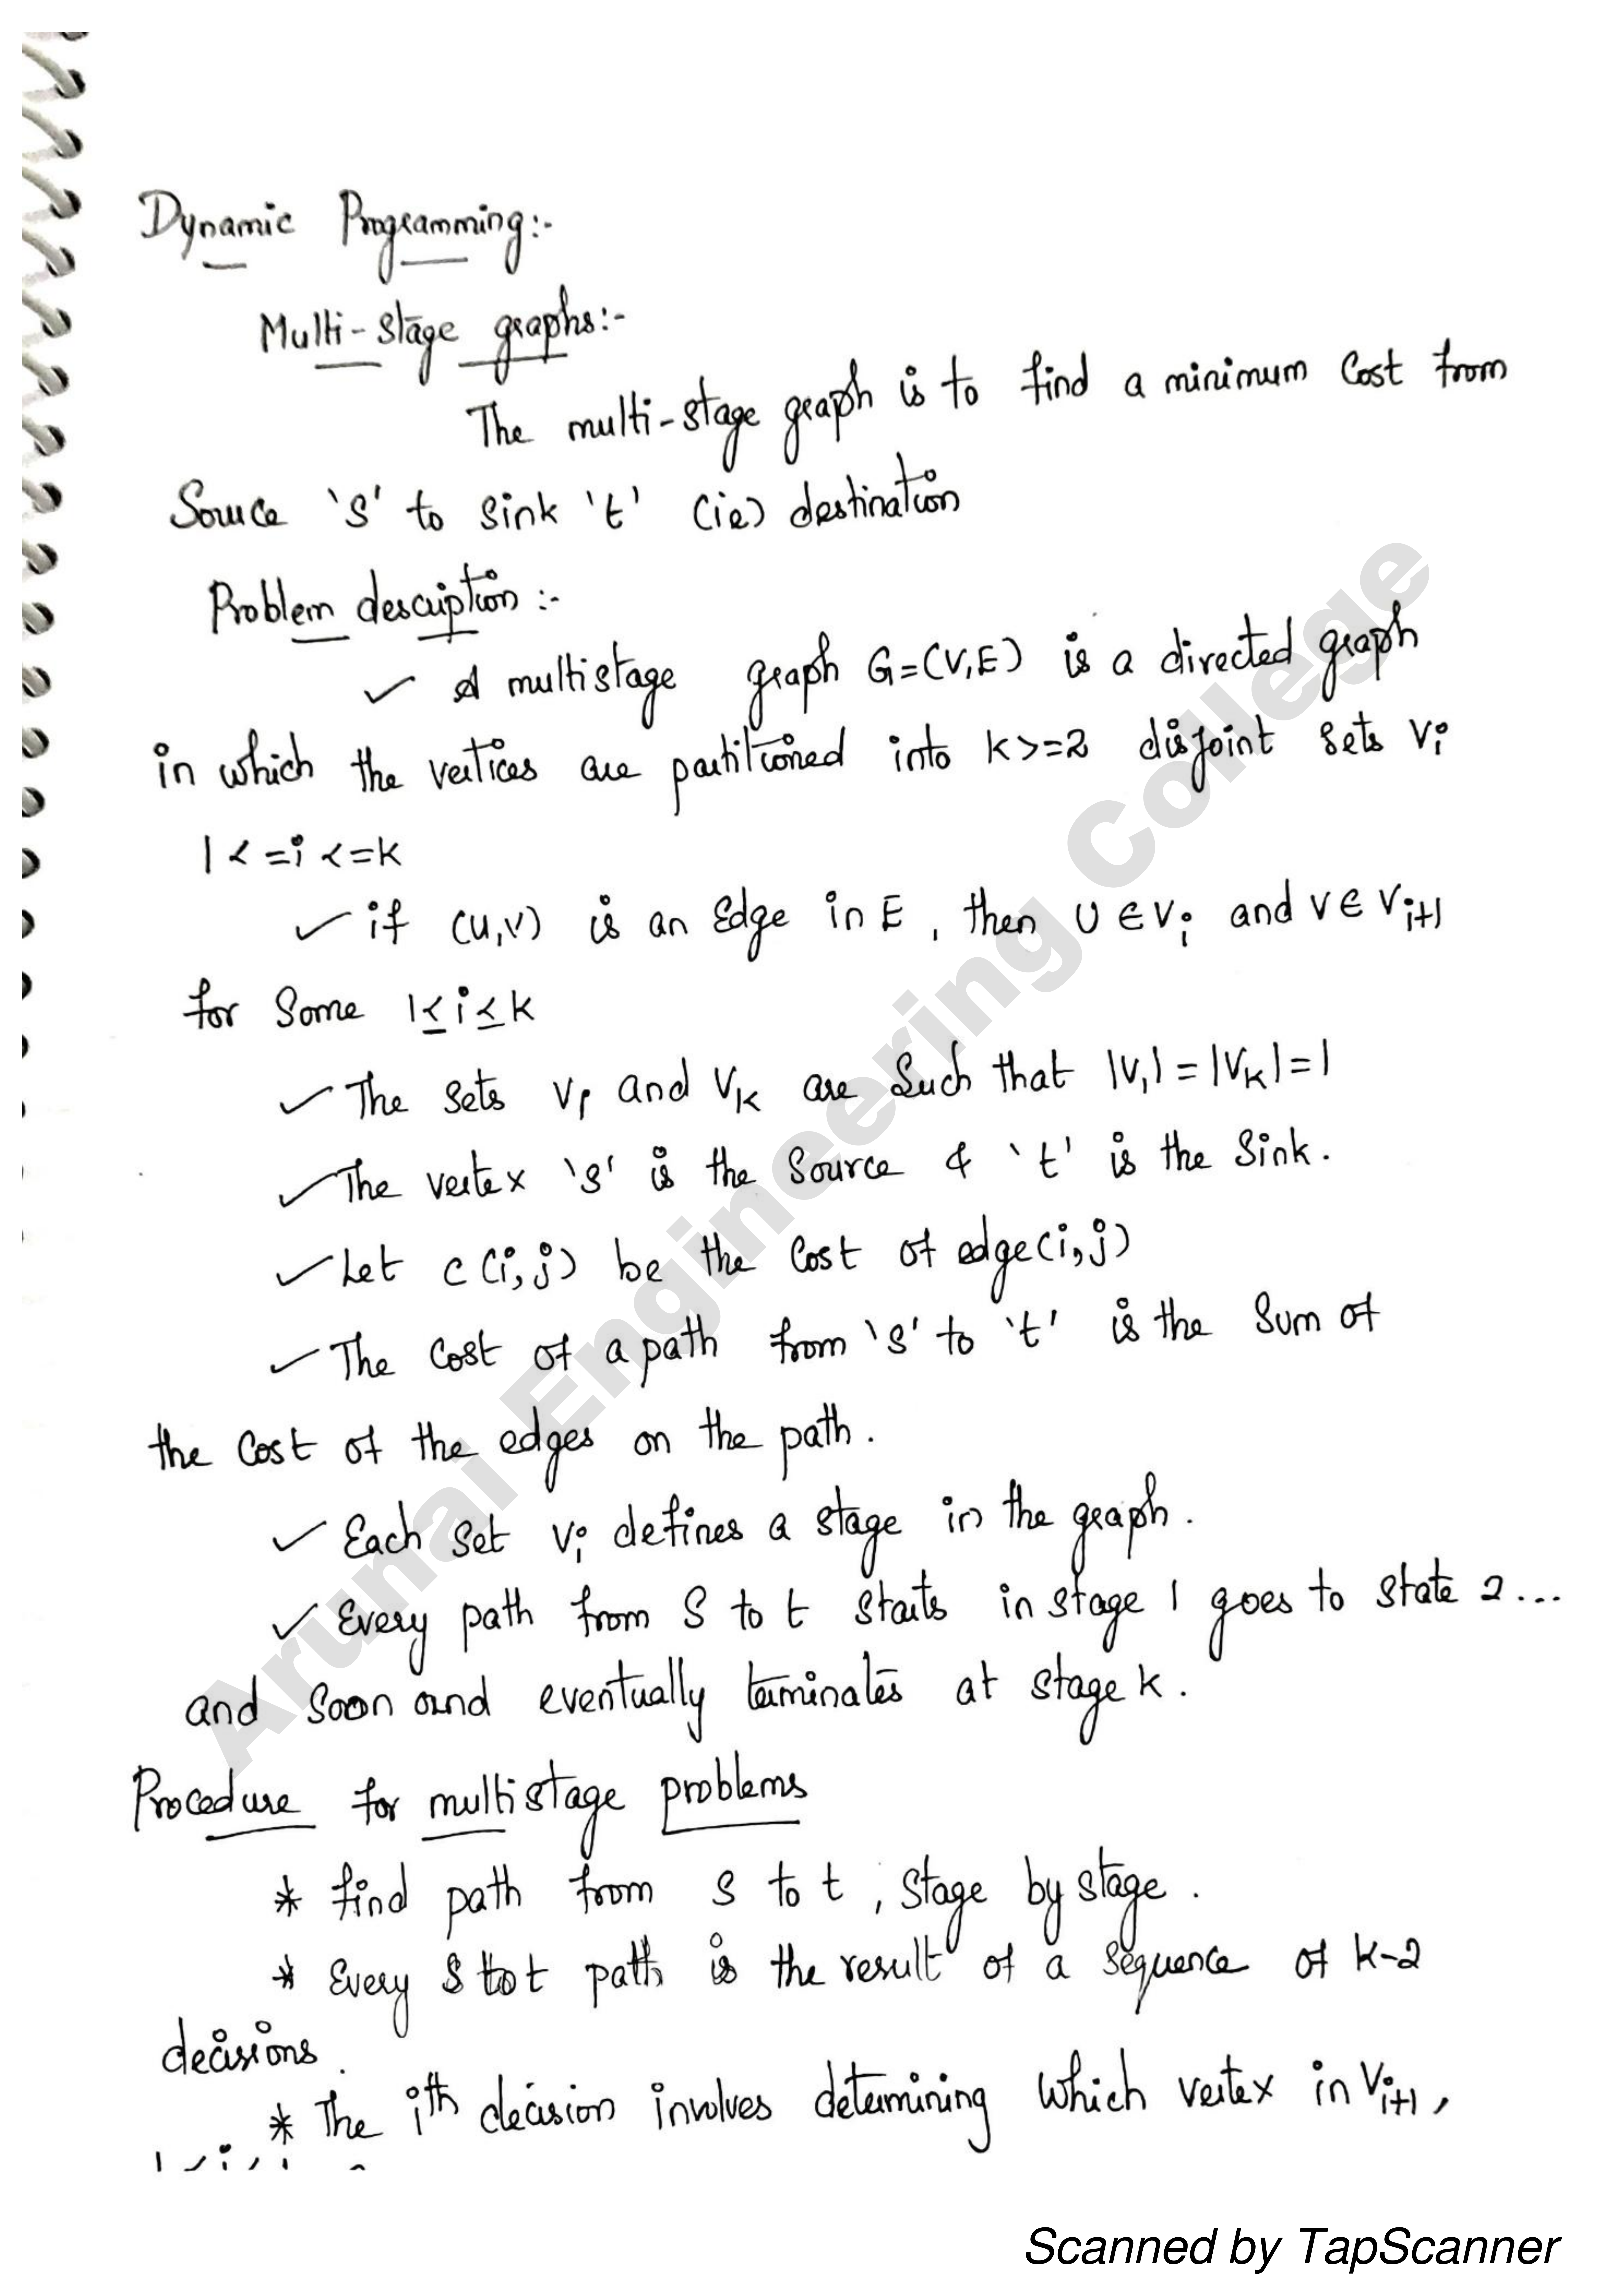 Dynamic Programming:-
Multi-stage graphs:-
The multi-stage graph is to find a minimum cost from
Source 's' to sink 't' (ie) destination
Problem description :-
✓ A multistage graph G=(V,E) is a directed graph
in which the vertices are partitioned into k>=2 disjoint sets Vi
1<=i<=k
✓ if (u,v) is an Edge in E, then U∈Vi and V∈Vi+1
for Some 1≤i≤k
✓ The sets V1 and Vk are Such that |V1|=|Vk|=1
✓ The vertex 's' is the Source & 't' is the Sink.
✓ Let c(i,j) be the Cost of edge(i,j)
✓ The Cost of a path from 's' to 't' is the Sum of
the Cost of the edges on the path.
✓ Each Set Vi defines a stage in the graph.
✓ Every path from S to t starts in stage 1 goes to state 2...
and Soon and eventually terminates at stage k.
Procedure for multistage problems
* find path from s to t, stage by stage.
* Every S to t path is the result of a sequence of k-2
decisions.
* The ith decision involves determining which vertex in Vi+1,
Arunai Engineering College
Scanned by TapScanner